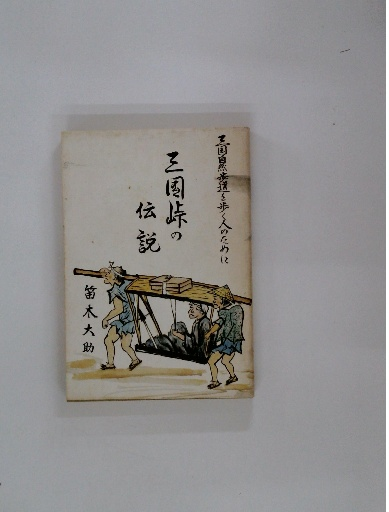 三国自然歩道を歩く人のために
三国峠の
伝説
笛木大助